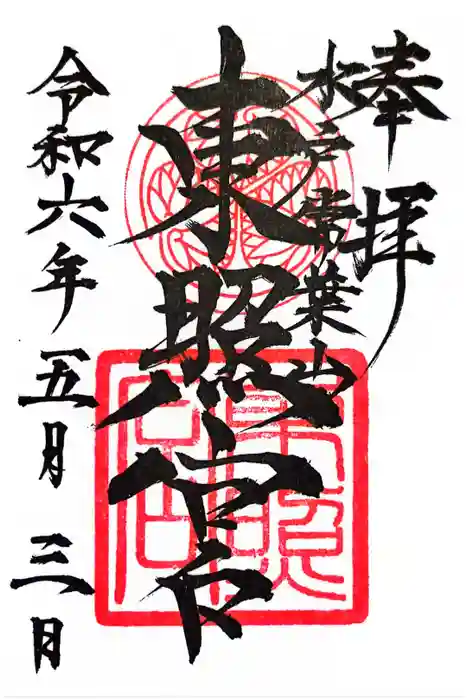 奉拝
水戸常葉山
東照宮
令和六年 五月 三日
東照宮